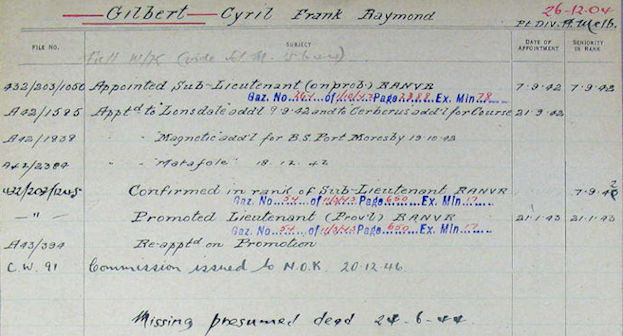 Gilbert Cyril Frank Raymond 26-12-04
Pt. Div. A. Melb.
FILE NO. SUBJECT DATE OF APPOINTMENT SENIORITY IN RANK
Full W/K
432/203/1050 Appointed Sub-Lieutenant (on prob.) RANVR 7.9.42 7.9.42
Gaz. No. of Page 2388 Ex. Min 78
A42/1585 Apptd to "Lonsdale" add'l 9.9.42 and to Cerberus add'l for Course 21.9.42
A42/1938 " " Magnetic add'l for B.S. Port Moresby 19.10.42
A42/2384 " " "Matafele" 18.12.42
432/203/1245 Confirmed in rank of Sub-Lieutenant RANVR 7.9.42
Gaz. No. 54 of 11/3/43 Page 650 Ex. Min 17
— " — Promoted Lieutenant (Prov'l) RANVR 21.1.43 21.1.43
Gaz. No. 54 of 11/3/43 Page 650 Ex. Min 17
A43/394 Re-apptd on Promotion
C.W. 91 Commission issued to N.O.K. 20-12-46
Missing presumed dead 24-6-44